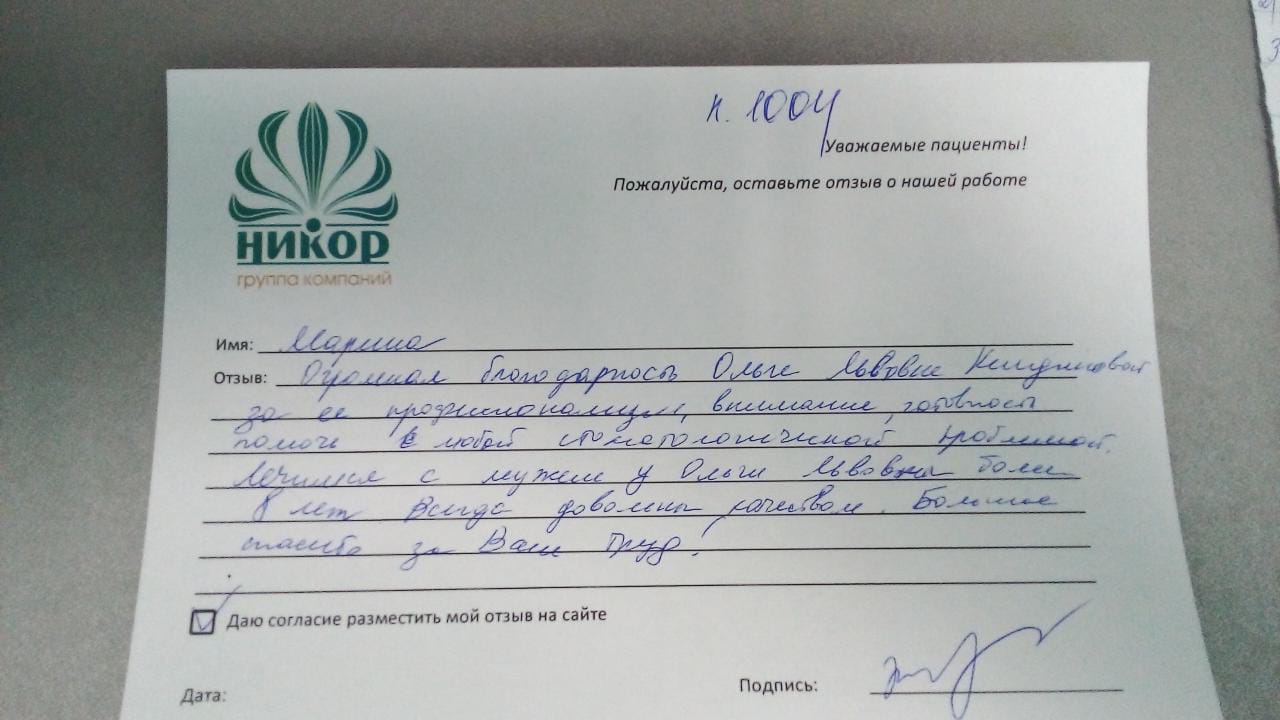 к. 1004
Уважаемые пациенты!
Пожалуйста, оставьте отзыв о нашей работе
НИКОР
группа компаний
Имя: Марина
Отзыв: Огромная благодарность Ольге Львовне
за ее профессионализм, внимание, готовность
помочь с любой стоматологической проблемой.
Лечимся с мужем у Ольги Львовны более
8 лет Всегда довольны качеством. Большое
спасибо за Ваш труд!
Даю согласие разместить мой отзыв на сайте
Дата:
Подпись: